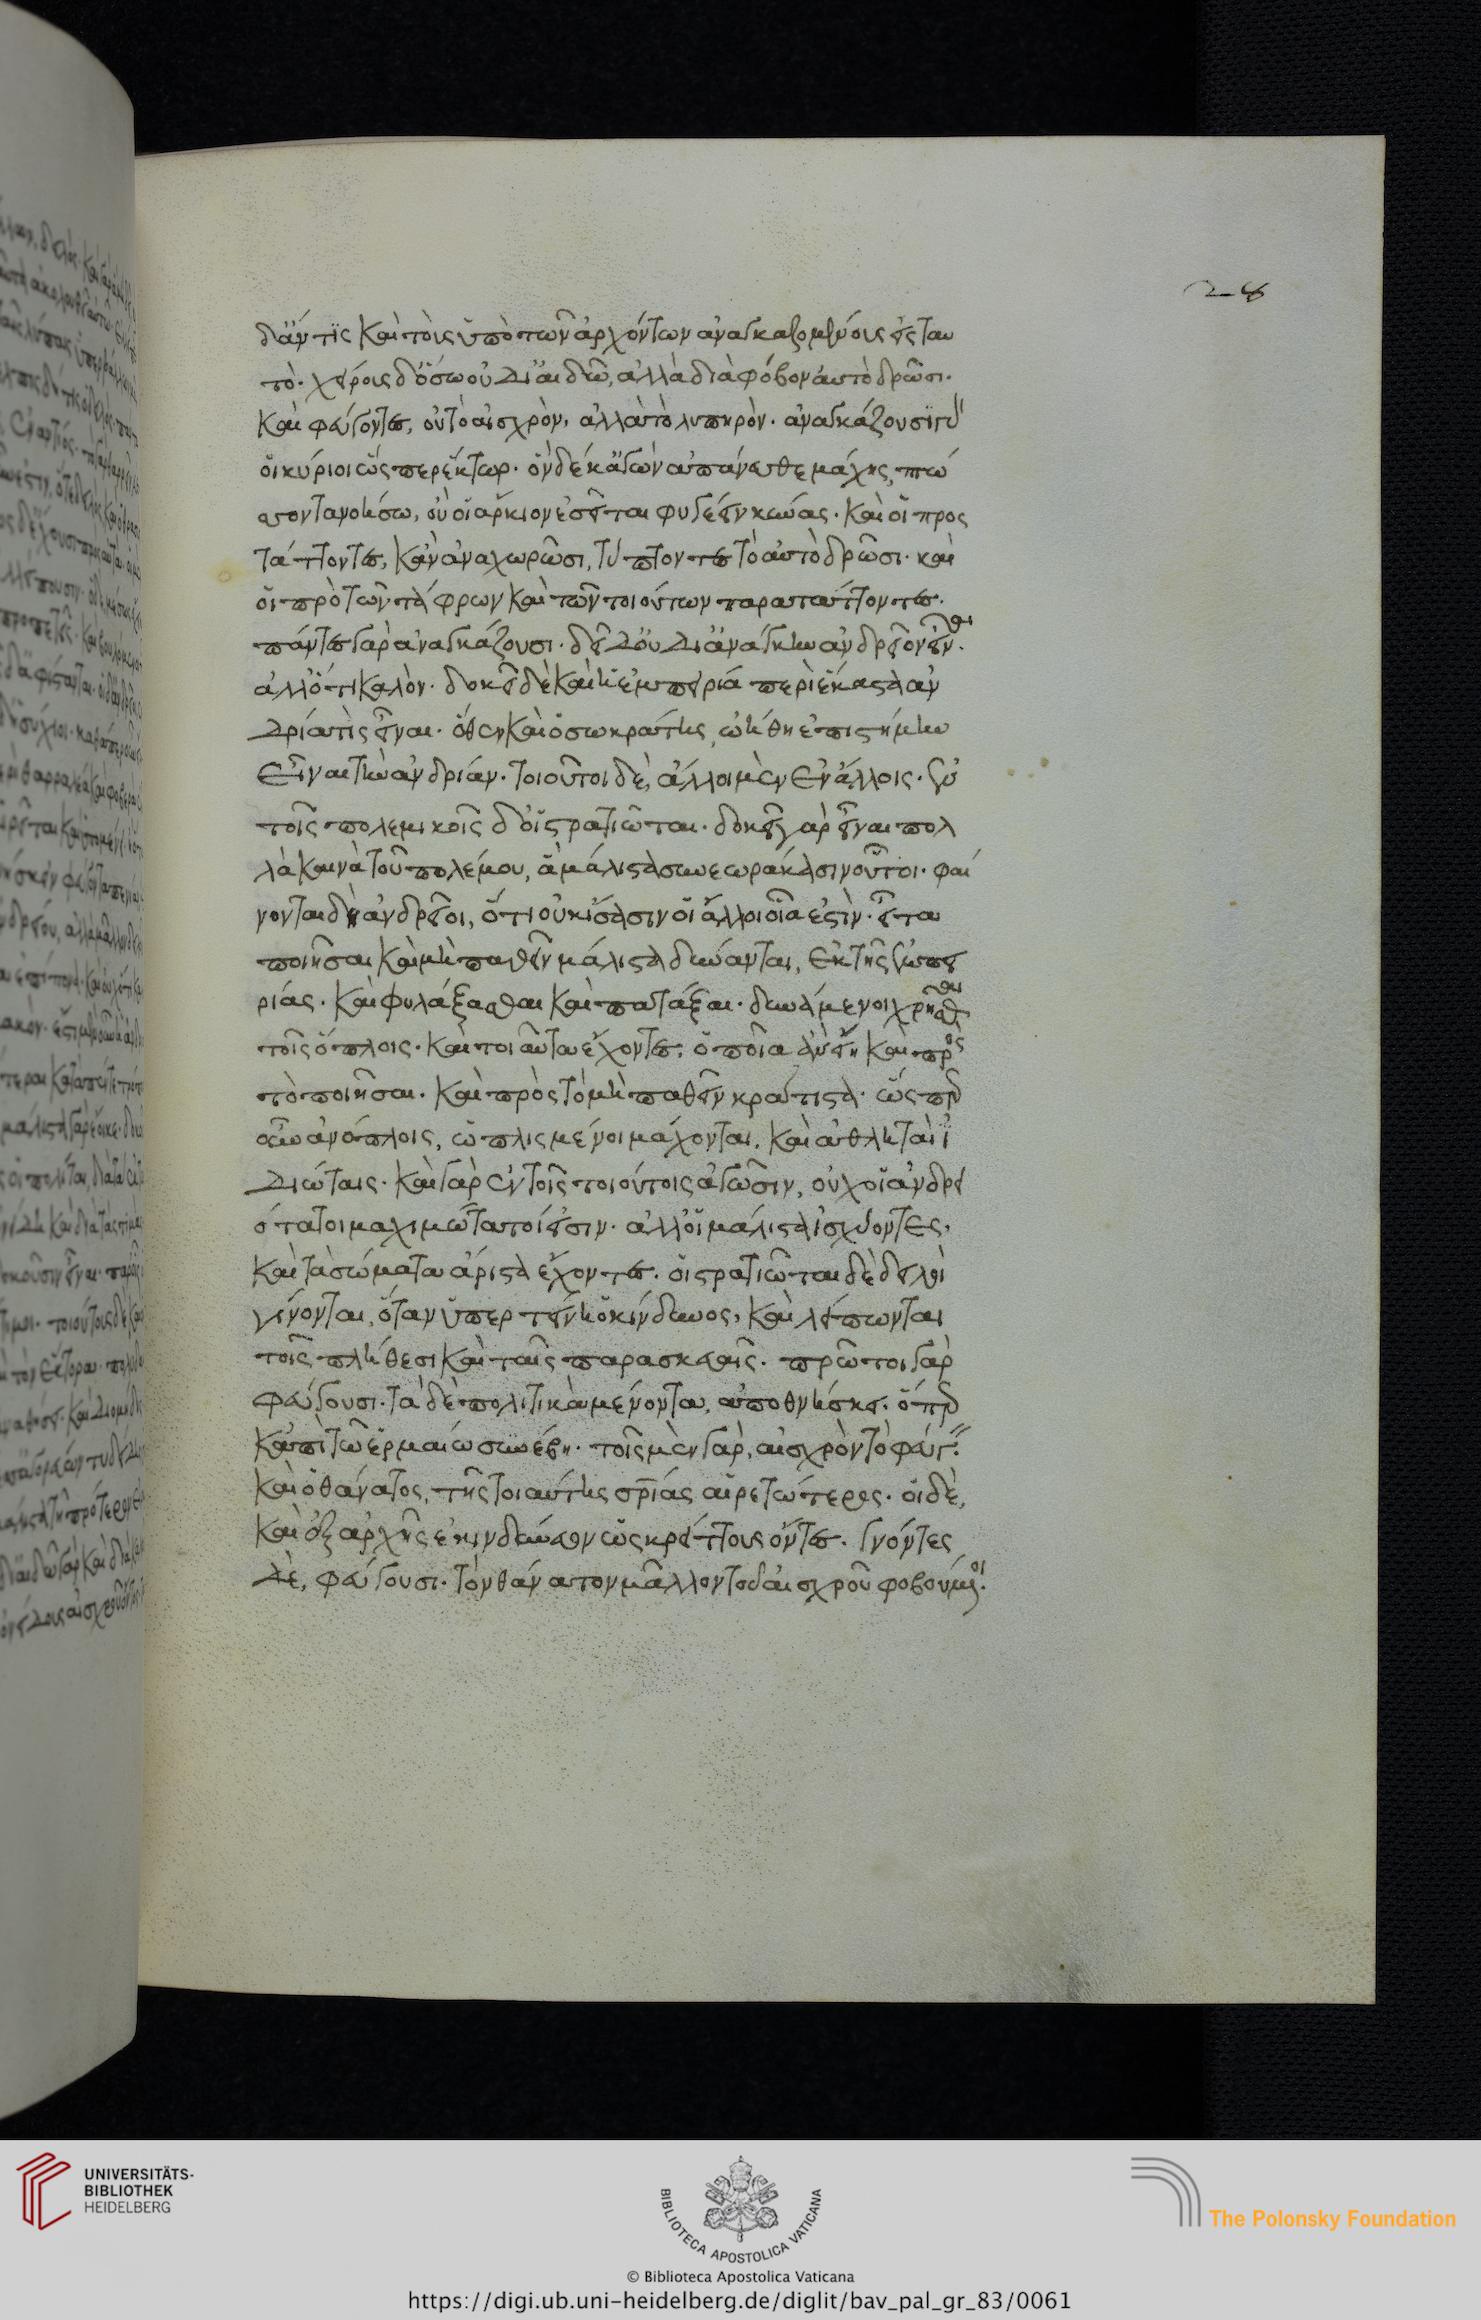 28
δἄν τις καὶ τοὺς ὑπὸ τῶν ἀρχόντων ἀναγκαζομένοις εἰς ταυ
τό. χείροις δ' ὅσω οὐ δι' αἰδῶ, ἀλλὰ διὰ φόβον αὐτὸ δρῶσι.
καὶ φεύγοντες, οὐ τὸ αἰσχρὸν, ἀλλὰ τὸ λυπηρόν. ἀναγκάζουσι γὰρ
οἱ κύριοι ὥσπερ ἕκτωρ. ὃν δέ κ' ἐγὼν ἀπάνευθε μάχης, πτώ
σσοντα νοήσω, οὔ οἱ ἄρκιον ἐσεῖται φυγέειν κύνας. καὶ οἱ προς
τάττοντες, κἂν ἀναχωρῶσι, τύπτοντες τὸ αὐτὸ δρῶσι. καὶ
οἱ πρὸ τῶν τάφρων καὶ τῶν τοιούτων παρατάττοντες.
πάντες γὰρ ἀναγκάζουσι. δεῖ δ' οὐ δι' ἀνάγκην ἀνδρεῖον εἶναι.
ἀλλ' ὅτι καλόν. δοκεῖ δὲ καὶ ἡ ἐμπειρία περὶ ἕκαστα ἀν
δρία τὶς εἶναι. ὅθεν καὶ ὁ σωκράτης, ὠήθη ἐπιστήμην
εἶναι τὴν ἀνδρίαν. τοιοῦτοι δὲ, ἄλλοι μὲν ἐν ἄλλοις. ἐν
τοῖς πολεμικοῖς δ' οἱ στρατιῶται. δοκεῖ γὰρ εἶναι πολ
λὰ καινὰ τοῦ πολέμου, ἃ μάλιστα συνεωράκασιν οὗτοι. φαί
νονται δὴ ἀνδρεῖοι, ὅτι οὐκ ἴσασιν οἱ ἄλλοι οἷα ἐστίν. εἶτα
ποιῆσαι καὶ μὴ παθεῖν μάλιστα δύνανται, ἐκ τῆς ἐμπει
ρίας. καὶ φυλάξασθαι καὶ πατάξαι. δυνάμενοι χρῆσθαι
τοῖς ὅπλοις. καὶ τοιαῦτα ἔχοντες, ὁποῖα ἂν εἴη καὶ πρὸς
τὸ ποιῆσαι. καὶ πρὸς τὸ μὴ παθεῖν κράτιστα. ὥσπερ
οὖν ἀνόπλοις, ὡπλισμένοι μάχονται, καὶ ἀθληταὶ ἰ
διώταις. καὶ γὰρ ἐν τοῖς τοιούτοις ἀγῶσιν, οὐχ οἱ ἀνδρει
ότατοι μαχιμώτατοί εἰσιν. ἀλλ' οἱ μάλιστα ἰσχύοντες,
καὶ τὰ σώματα ἄριστα ἔχοντες. οἱ στρατιῶται δὲ δειλοὶ
γίνονται, ὅταν ὑπερτείνη ὁ κίνδυνος, καὶ λείπωνται
τοῖς πλήθεσι καὶ ταῖς παρασκευαῖς. πρῶτοι γὰρ
φεύγουσι. τὰ δὲ πολιτικὰ μένοντα, ἀποθνήσκει. ὅπερ
κἀπὶ τῶ ἑρμαίω συνέβη. τοῖς μὲν γὰρ, αἰσχρὸν τὸ φεύγειν.
καὶ ὁ θάνατος, τῆς τοιαύτης σρίας αἱρετώτερος. οἱ δὲ,
καὶ ἐξ ἀρχῆς ἐκινδύνευον ὡς κρείττους ὄντες. γνόντες
δὲ, φεύγουσι. τὸν θάνατον μᾶλλον τοῦ αἰσχροῦ φοβούμενοι.
UNIVERSITÄTS-
BIBLIOTHEK
HEIDELBERG
BIBLIOTECA APOSTOLICA VATICANA
© Biblioteca Apostolica Vaticana
The Polonsky Foundation
https://digi.ub.uni-heidelberg.de/diglit/bav_pal_gr_83/0061